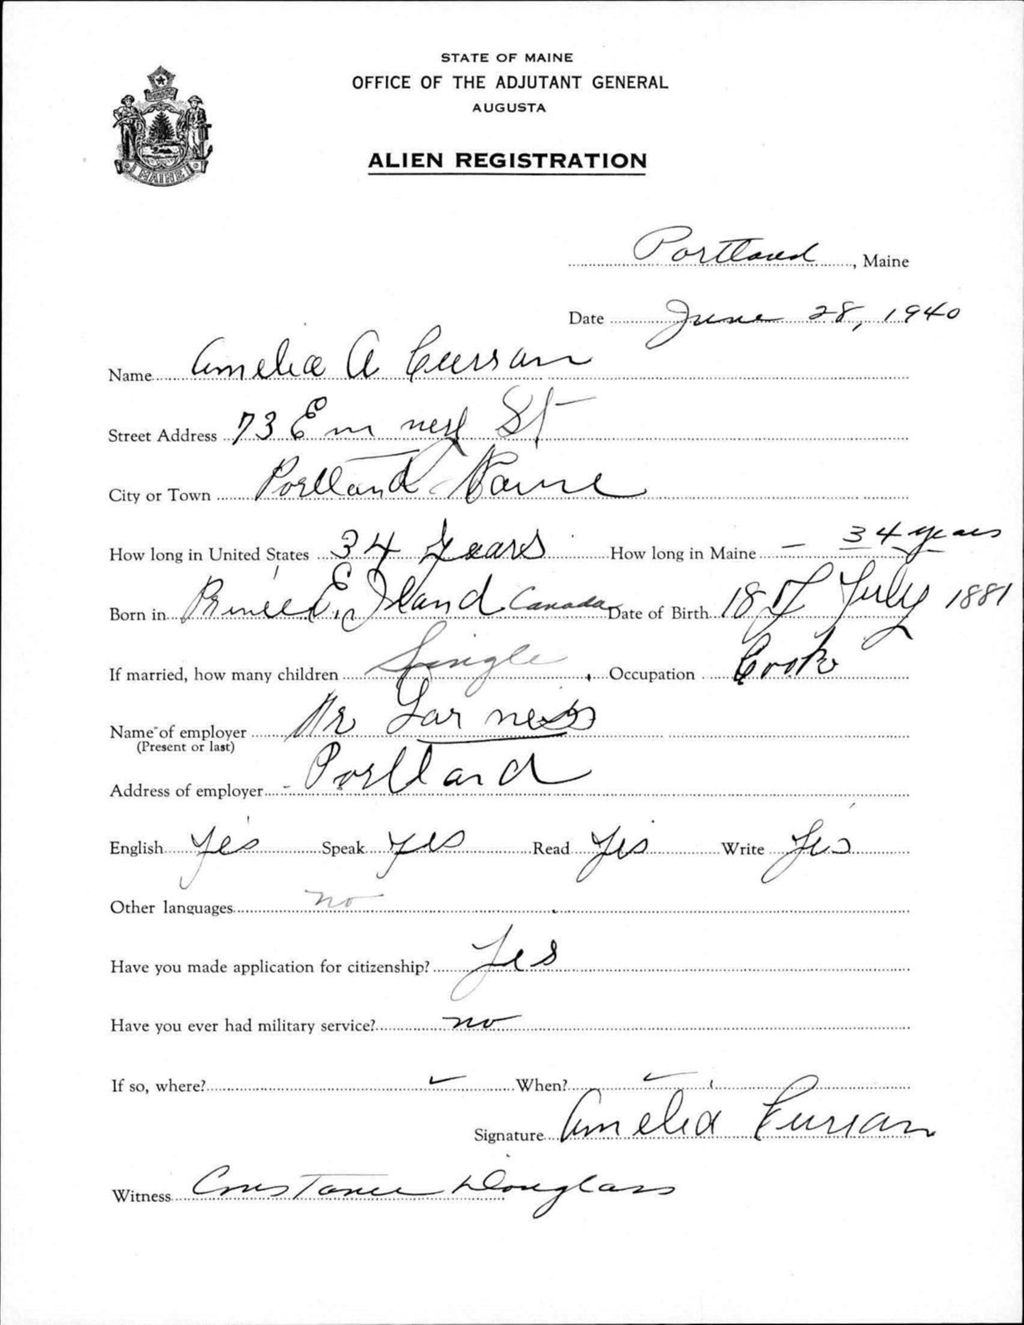 STATE OF MAINE
OFFICE OF THE ADJUTANT GENERAL
AUGUSTA
ALIEN REGISTRATION
MAINE
Portland, Maine
Date June 28, 1940
Name Amelia A Curran
Street Address 73 St
City or Town Portland Maine
How long in United States 34 Years How long in Maine - 34 years
Born in Prince E. Island Canada Date of Birth 18 of July 1881
If married, how many children Single, Occupation Cook
Name of employer Mr
(Present or last)
Address of employer Portland
English Yes Speak Yes Read Yes Write Yes
Other languages no
Have you made application for citizenship? Yes
Have you ever had military service? no
If so, where? When?
Signature Amelia Curran
Witness Constance Douglass